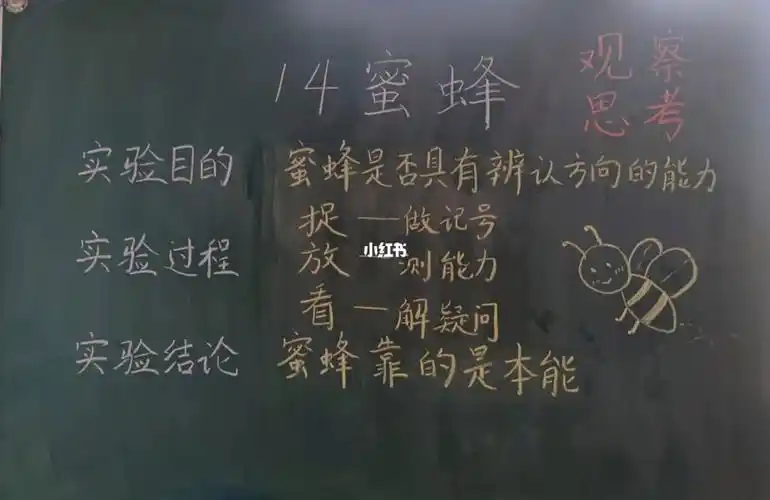 14 蜜蜂
观察
思考
实验目的 蜜蜂是否具有辨认方向的能力
捉—做记号
实验过程 放—测能力
小红书
看—解疑问
实验结论 蜜蜂靠的是本能